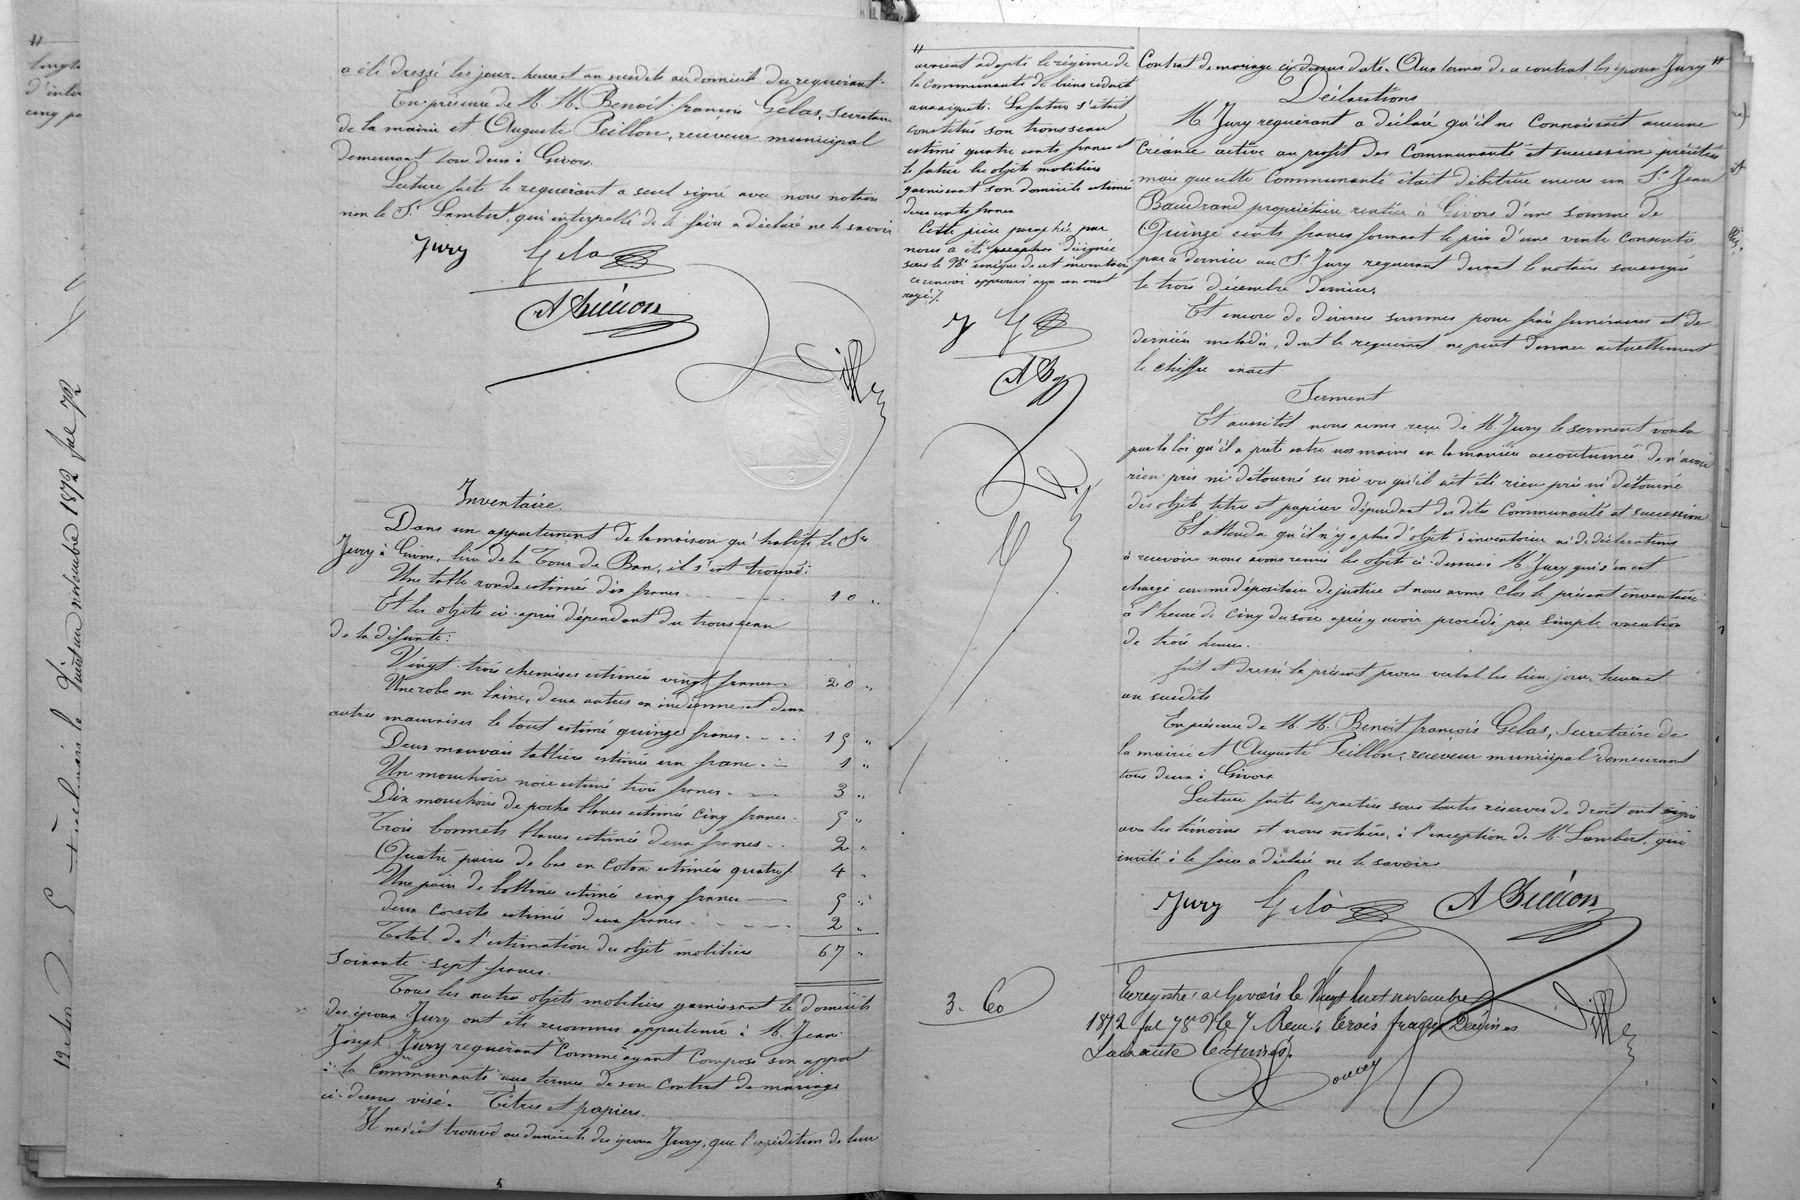 a été dressé les jour, heure et an susdits au domicile du requérant.
En présence de M. M. Benoît-françois Gélas, secrétaire
de la mairie et Auguste Peillon, receveur municipal
demeurant tous deux à Givors.
Lecture faite le requérant a seul signé avec nous notaire
non le Sr Lambert, qui interpellé de le faire a déclaré ne le savoir
Jury Gelas
Inventaire.
Dans un appartement de la maison qu'habite le Sr
Jury à Givors, lieu de la Tour de Ban, il s'est trouvé:
Une table ronde estimée dix francs 10 "
Et les objets ci-après dépendant du trousseau
de la défunte:
Vingt-trois chemises estimées vingt francs 20 "
Une robe en laine, deux autres en indienne et deux
autres mauvaises le tout estimé quinze francs 15 "
Deux mauvais tabliers estimés un franc 1 "
Un mouchoir noir estimé trois francs 3 "
Dix mouchoirs de poche blancs estimés cinq francs 5 "
Trois bonnets blancs estimés deux francs 2 "
Quatre paires de bas en coton estimées quatre f 4 "
Une paire de bottines estimée cinq francs 5 "
deux corsets estimés deux francs 2 "
Total de l'estimation des objets mobiliers 67 "
soixante-sept francs.
Tous les autres objets mobiliers garnissant le domicile
des époux Jury ont été reconnus appartenir à M. Jean
Joseph Jury requérant comme ayant composé son apport
à la Communauté aux termes de son contrat de mariage
ci-dessus visé. Titres et papiers.
Il ne s'est trouvé au domicile des époux Jury, que l'expédition de leur
"
avaient adopté le régime de
la Communauté de biens réduite
aux acquêts. La future s'était
constitué son trousseau
estimé quatre cents francs et
le futur les objets mobiliers
garnissant son domicile estimés
deux cents francs
Cette pièce paraphée par
nous a été désignée
sous le No unique de cet inventaire
ce renvoi approuvé ayant un mot
rayé /.
J G
Contrat de mariage ci-dessus daté. Aux termes de ce contrat les époux Jury "
Déclarations
M. Jury requérant a déclaré qu'il ne connaissait aucune
Créance active au profit des Communauté et succession précitées
mais que cette Communauté était débitrice envers un Sr Jean
Baudrand propriétaire rentier à Givors d'une somme de
Quinze cents francs formant le prix d'une vente consentie
par ce dernier au Sr Jury requérant devant le notaire soussigné
le trois décembre dernier.
Et encore de diverses sommes pour frais funéraires et de
dernière maladie, dont le requérant ne peut donner actuellement
le chiffre exact
Serment
Et aussitôt nous avons reçu de M. Jury le serment voulu
par la loi qu'il a prêté entre nos mains en la manière accoutumée, de n'avoir
rien pris ni détourné su ni vu qu'il ait été rien pris ni détourné
des objets, titres et papiers dépendant des dites Communauté et succession
Et attendu qu'il n'y a plus d'objets à inventorier ni de déclarations
à recevoir nous avons remis les objets ci-dessus à M. Jury qui s'en est
chargé comme dépositaire de justice et nous avons clos le présent inventaire
à l'heure de cinq du soir après y avoir procédé par simple vacation
de trois heures.
fait et dressé le présent procès verbal les lieu, jour, heure et
an susdits
En présence de M. M. Benoît françois Gélas, secrétaire de
la mairie et Auguste Peillon, receveur municipal demeurant
tous deux à Givors
Lecture faite les parties sous toutes réserves de droit ont signé
avec les témoins et nous notaire, à l'exception de M. Lambert, qui
invité à le faire a déclaré ne le savoir
Jury Gelas
3. 60
Enregistré à Givors le Vingt huit novembre
1872 fol 78 Ro Cse 7 Reçu: trois francs Décimes
Soixante Centimes.